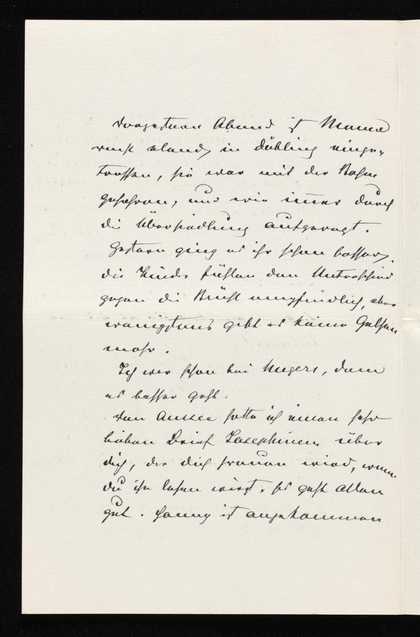 Vorgestern Abend ist Mama
recht elend in Döbling einge-
troffen, sie war mit der Bahn
gefahren, und wie immer durch
die Übersiedlung aufgeregt.
Gestern ging es ihr schon besser,
die Kinder fühlen den Unterschied
gegen die Brühl empfindlich, aber
wenigstens gibt es keine Gelsen
mehr.
Ich war schon bei Mugerl, dem
es besser geht.
Von Aussee hatte ich einen sehr
lieben Brief Josephinens über
dich, der dich freuen wird, wenn
du ihn lesen wirst. Es geht Allen
gut. Fanny ist angekommen